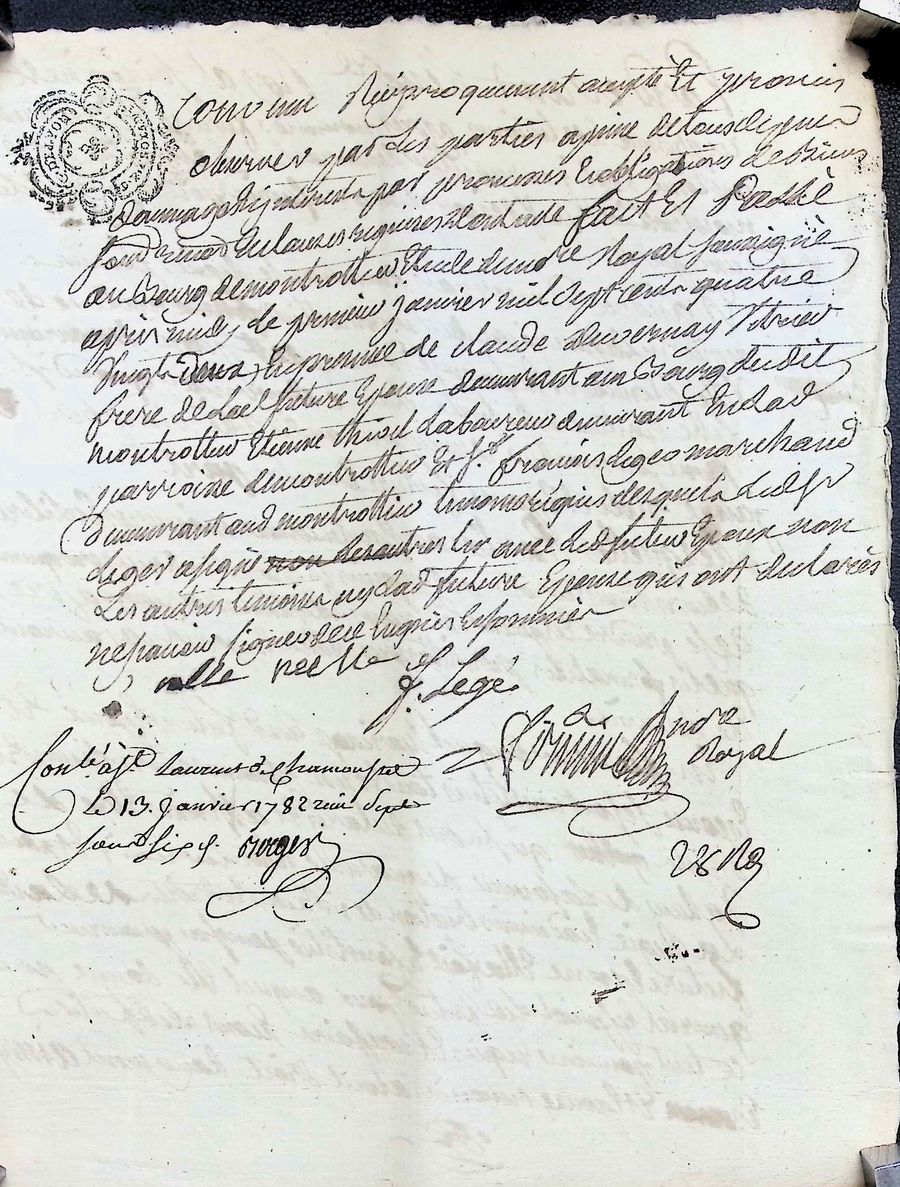 Convenu Réciproquement accepté Et promis
observer par les parties a peine de tous depens
dommages interets par promesses Et obligations de biens
renond et clauses requises dont acte fait Et Passé
au Bourg de montrottier Etude du no.re Royal soussigné
apres midy le premier janvier mil sept cents quatre
vingts deux En presence de claude Duvernay Vitrier
frere de lad. future Epouse demeurant au Bourg dudit
montrottier Etienne laboureur demeurant En lad
parroisse de montrottier Et Sr. francois Leger marchand
demeurant aud montrottier temoins requis desquels Led. Sr
Leger a signé non les autres avec led futur Epoux non
Les autres temoins ny lad future Epouse qui ont declarés
ne savoir signer de ce Enquis Et sommés
nulle
f. Legé
no.re
Royal
Con.lé à St. Laurent de Chamousset
Le 13. janvier 1782 reçu sept
sous six d.